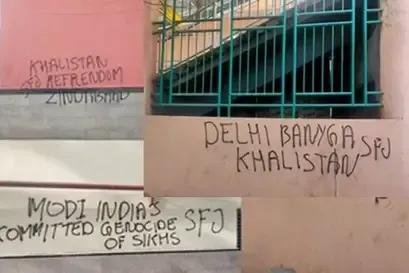 KHALISTAN
SFJ REFRENDOM
ZINDABAAD
DELHI BANYGA SFJ
KHALISTAN
MODI INDIA'S
COMMITTED GENOCIDE SFJ
OF SIKHS